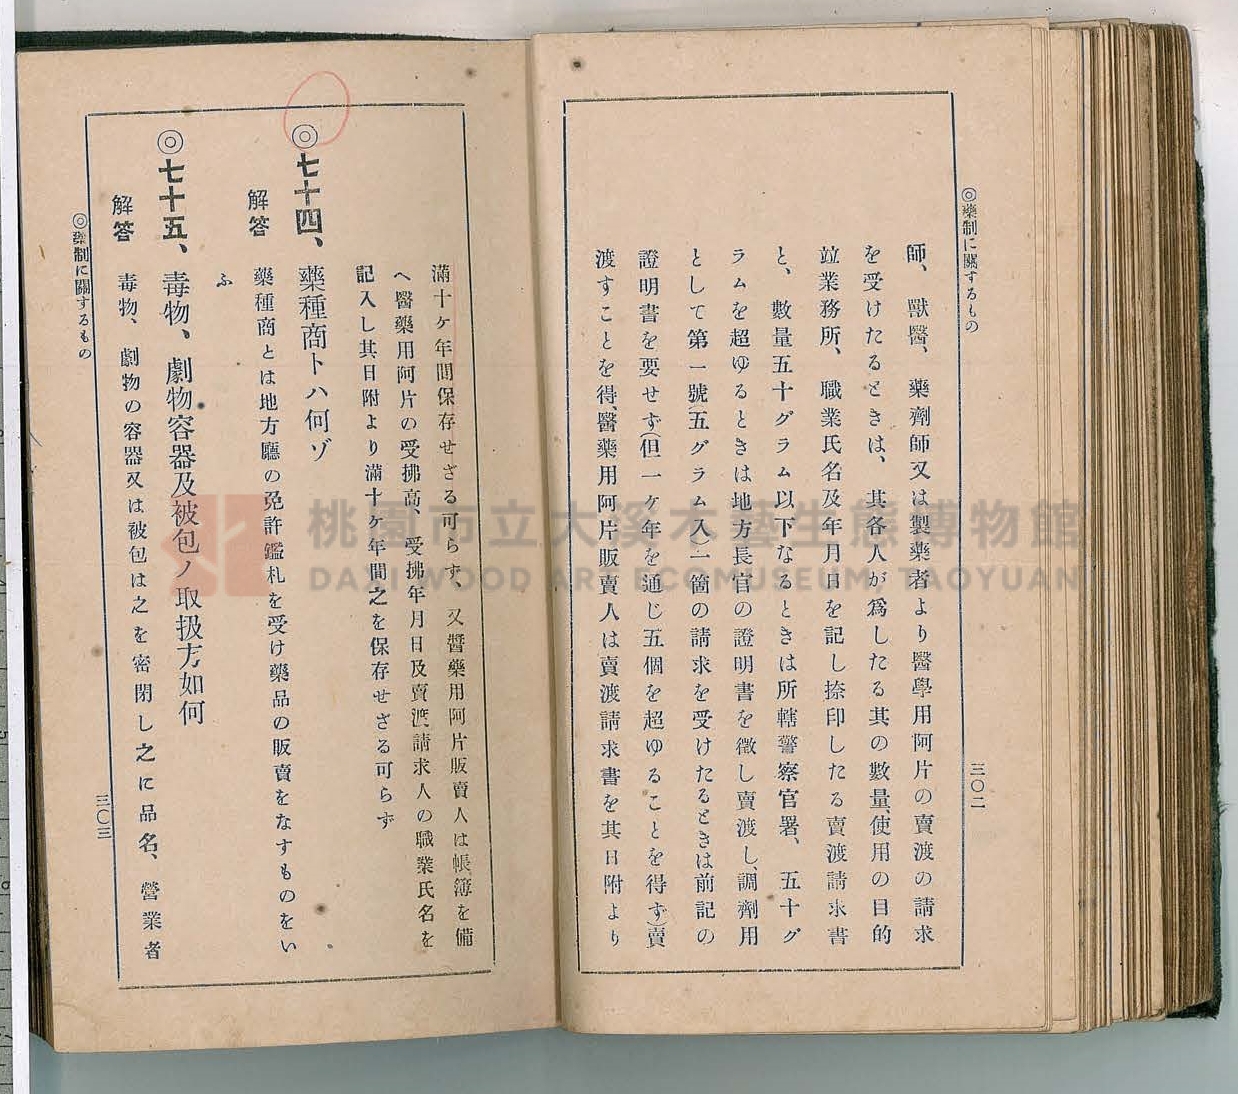 ◎藥制に關するもの
三〇二
師、獸醫、藥劑師又は製藥者より醫學用阿片の賣渡の請求
を受けたるときは、其各人が爲したる其の數量、使用の目的
竝業務所、職業氏名及年月日を記し捺印したる賣渡請求書
と、數量五十グラム以下なるときは所轄警察官署、五十グ
ラムを超ゆるときは地方長官の證明書を徵し賣渡し、調劑用
として第一號(五グラム入)一箇の請求を受けたるときは前記の
證明書を要せず(但一ケ年を通じ五個を超ゆることを得ず)賣
渡すことを得、醫藥用阿片販賣人は賣渡請求書を其日附より
滿十ケ年間保存せざる可らず、又醫藥用阿片販賣人は帳簿を備
へ醫藥用阿片の受拂高、受拂年月日及賣渡、請求人の職業氏名を
記入し其日附より滿十ケ年間之を保存せざる可らず
◎七十四、藥種商トハ何ゾ
解答 藥種商とは地方廳の免許鑑札を受け藥品の販賣をなすものをい
ふ
◎七十五、毒物、劇物容器及被包ノ取扱方如何
解答 毒物、劇物の容器又は被包は之を密閉し之に品名、營業者
◎藥制に關するもの
三〇三
桃園市立大溪木藝生態博物館
DAXI WOOD ART ECOMUSEUM, TAOYUAN